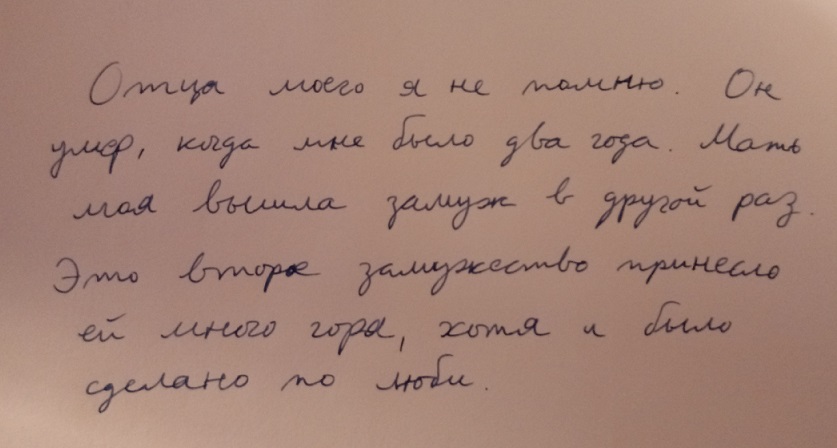 Отца моего я не помню. Он
умер, когда мне было два года. Мать
моя вышла замуж в другой раз.
Это второе замужество принесло
ей много горя, хотя и было
сделано по люби.